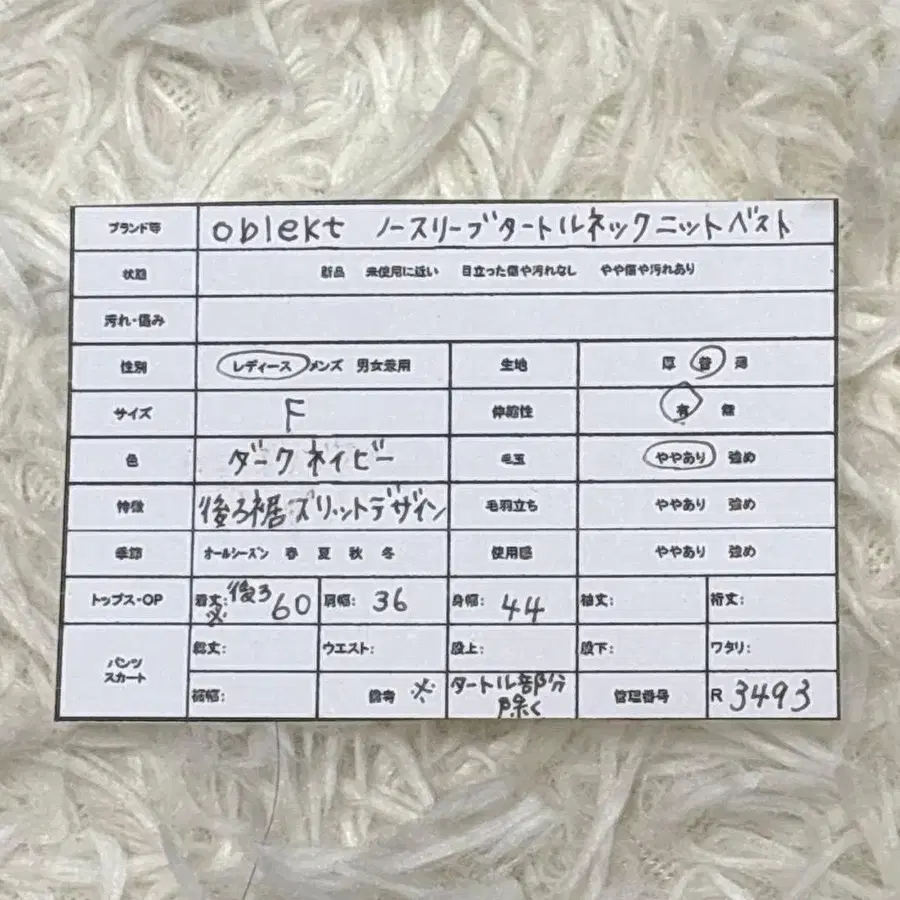 ブランド等 oblekt ノースリーブタートルネックニットベスト
状態 新品 未使用に近い 目立った傷や汚れなし やや傷や汚れあり
汚れ・傷み
性別 レディース メンズ 男女兼用 生地 厚 普 薄
サイズ F 伸縮性 有 無
色 ダークネイビー 毛玉 ややあり 強め
特徴 後ろ裾スリットデザイン 毛羽立ち ややあり 強め
季節 オールシーズン 春 夏 秋 冬 使用感 ややあり 強め
トップス・OP 着丈: ※後ろ60 肩幅: 36 身幅: 44 袖丈: 裄丈:
パンツ スカート 総丈: ウエスト: 股上: 股下: ワタリ:
裾幅: 備考 ※ タートル部分除く 管理番号 R 3493